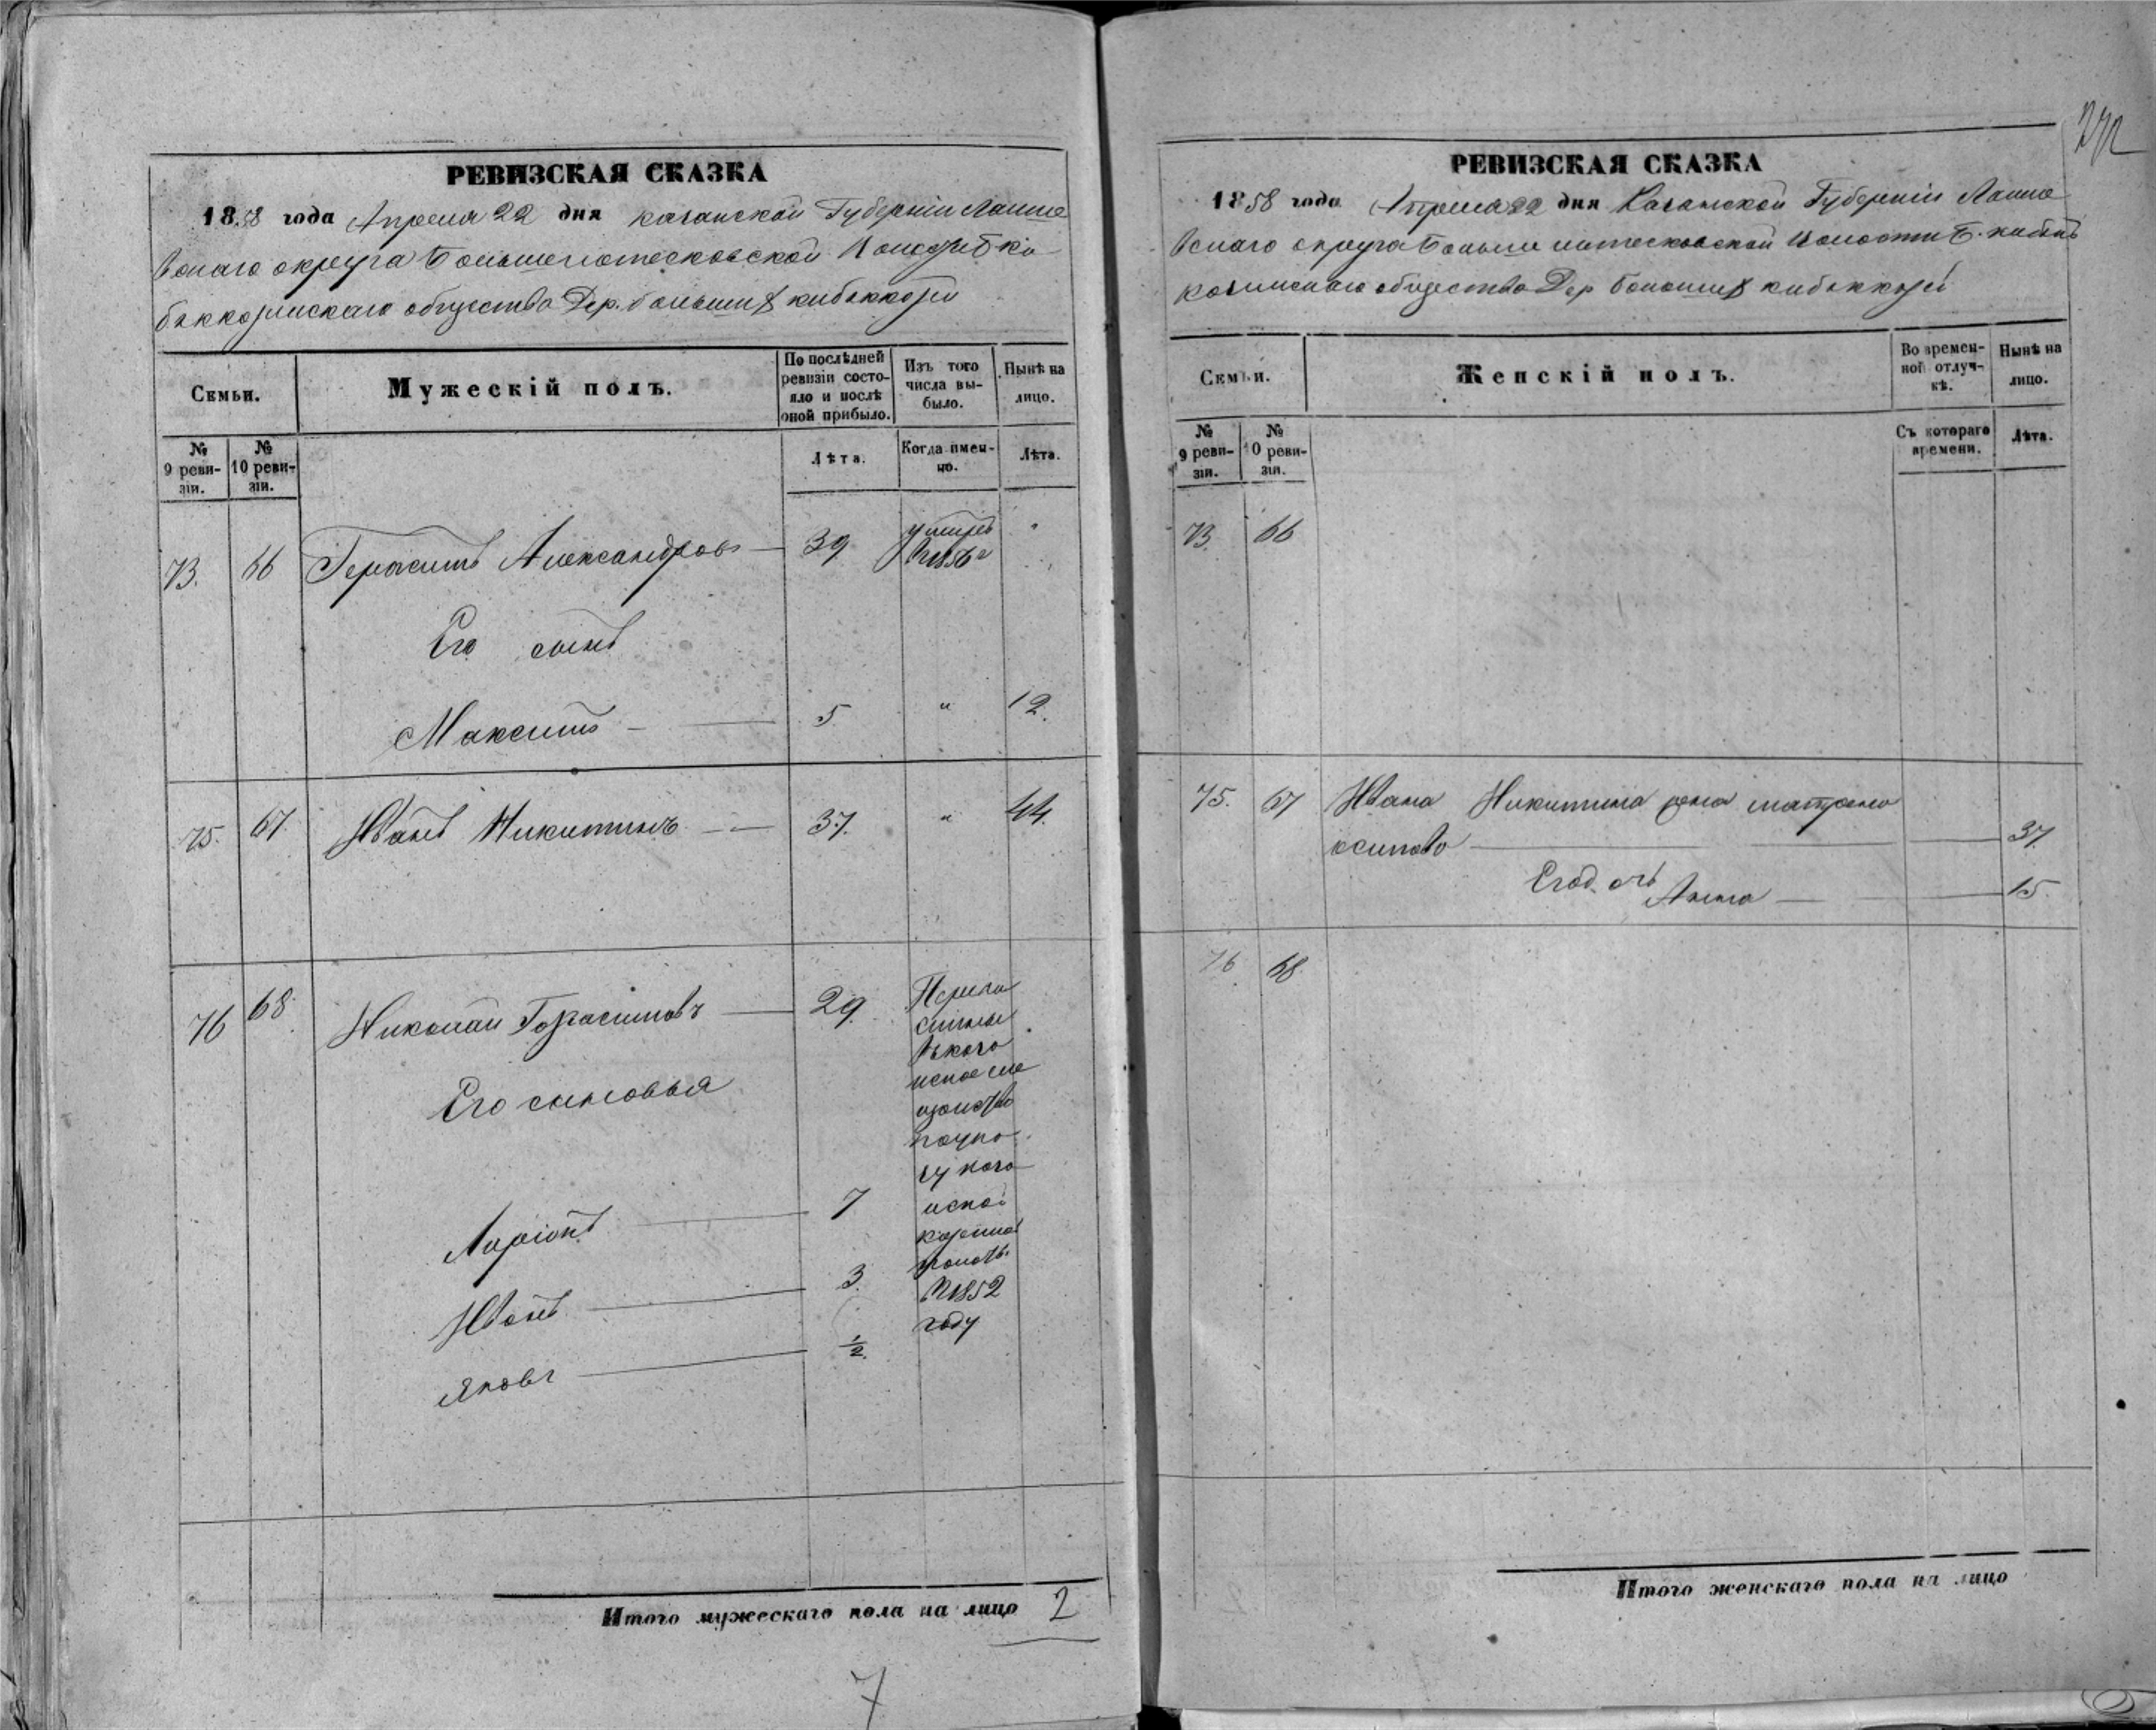 РЕВИЗСКАЯ СКАЗКА
1858 года Апреля 22 дня казанской Губерніи Лаише
вскаго округа
бяккозинскаго общества Дер. большихъ кибяккозей
Семьи.
Мужескій полъ.
По послѣдней ревизіи состояло и послѣ оной прибыло.
Изъ того числа выбыло.
Нынѣ на лицо.
№ 9 ревизіи.
№ 10 ревизіи.
Лѣта.
Когда именно.
Лѣта.
73. 66 Герасимъ Александровъ — 39 умеръ в 1856 г
Его сынъ
Максимъ — 5 " 12.
75. 67. Иванъ Никитинъ — 37. " 44.
76 68 Николай Гарасимовъ — 29.
Его сыновья
Ларіонъ — 7
Иванъ — 3.
Яковъ — 1/2.
в 1852
году
Итого мужескаго пола на лицо 2
7
РЕВИЗСКАЯ СКАЗКА
1858 года Апреля 22 дня Казанской Губерніи Лаише
вскаго округа
общества Дер большихъ кибяккозей
Семьи.
Женскій полъ.
Во временной отлучкѣ.
Нынѣ на лицо.
№ 9 ревизіи.
№ 10 ревизіи.
Съ котораго времени.
Лѣта.
73. 66
75. 67 Ивана Никитина жена матрена
осипова — 37.
Его дочь Анна — 15.
76 68.
Итого женскаго пола на лицо